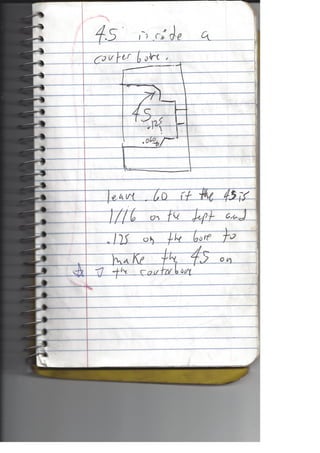 45° inside a
couterbore.
45
.125
.060
leave .60 if the 45 is
1/16 on the dept and
.125 on the bore to
make the 45 on
the couterbore